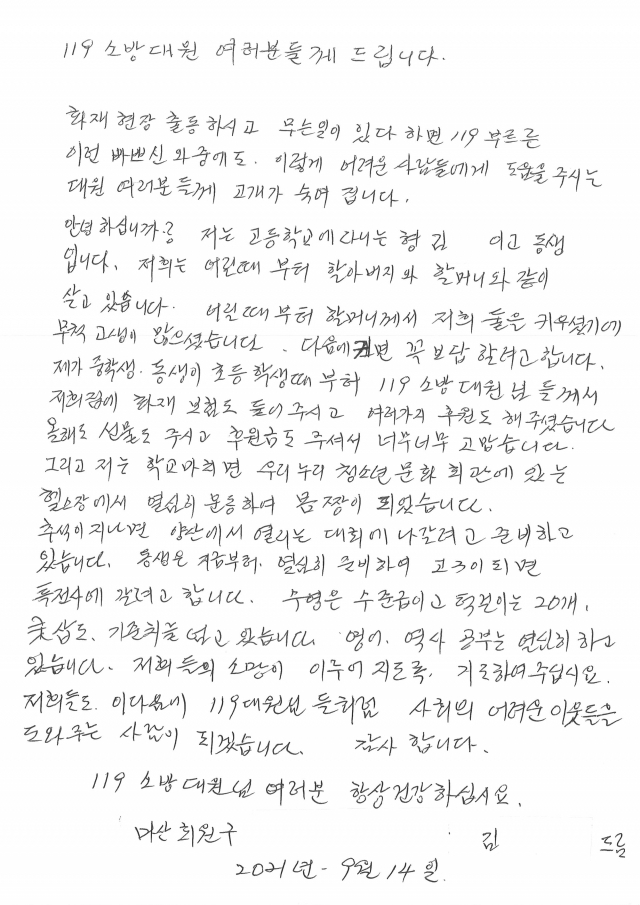 119 소방대원 여러분들께 드립니다.
화재 현장 출동하시고 무슨일이 있다 하면 119 부르는
이런 바쁘신 와중에도. 이렇게 어려운 사람들에게 도움을 주시는
대원 여러분들께 고개가 숙여 집니다.
안녕하십니까? 저는 고등학교에 다니는 형 김 이고 동생
입니다. 저희는 어린때 부터 할아버지와 할머니와 같이
살고 있습니다. 어린때부터 할머니께서 저희 둘은 키우셨기에
무척 고생이 많으셨습니다. 다음에 크면 꼭 보답 할려고합니다.
제가 중학생. 동생이 초등 학생때 부터 119 소방대원님 들께서
저희집에 화재 보험도 들어 주시고 여러가지 후원도 해 주셨습니다
올해도 선물도 주시고 후원금도 주셔서 너무너무 고맙습니다.
그리고 저는 학교마치면 우리누리 청소년 문화 회관에 있는
헬스장에서 열심히 운동하여 몸짱이 되었습니다.
추석이 지나면 양산에서 열리는 대회에 나갈려고 준비하고
있습니다. 동생은 지금부터. 열심히 준비하여 고3이 되면
특전사에 갈려고 합니다. 수영은 수준급이고 턱걸이는 20개.
윗삼도. 기준치를 넘고 있습니다. 영어. 역사 공부는 열심히 하고
있습니다. 저희들의 소망이 이루어 지도록. 기도하여주십시요.
저희들도. 이다음에 119대원님 들처럼 사회의 어려운이웃들을
도와주는 사람이 되겠습니다. 감사 합니다.
119 소방대원님 여러분 항상건강하십시요.
마산 회원구 김 드림
2021년 - 9월 14일.